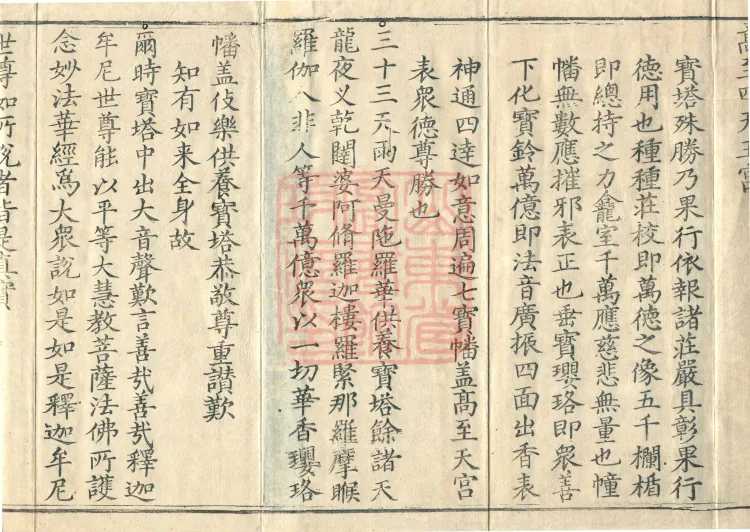 寶塔殊勝乃果行依報諸莊嚴具彰果行
德用也種種莊校即萬德之像五千欄楯
即總持之力龕室千萬應慈悲無量也幢
幡無數應摧邪表正也垂寶瓔珞即衆善
下化寶鈴萬億即法音廣振四面出香表
神通四達如意周遍七寶幡盖髙至天宮
表衆德尊勝也
三十三天雨天曼陁羅華供養寶塔餘諸天
龍夜叉乾闥婆阿脩羅迦樓羅緊那羅摩睺
羅伽人非人等千萬億衆以一切華香瓔珞
幡盖伎樂供養寶塔恭敬尊重讃歎
知有如来全身故
爾時寶塔中出大音聲歎言善㢤善㢤釋迦
牟尼世尊能以平等大慧教菩薩法佛所護
念妙法華經爲大衆說如是如是釋迦牟尼
世尊如所說者皆是真實